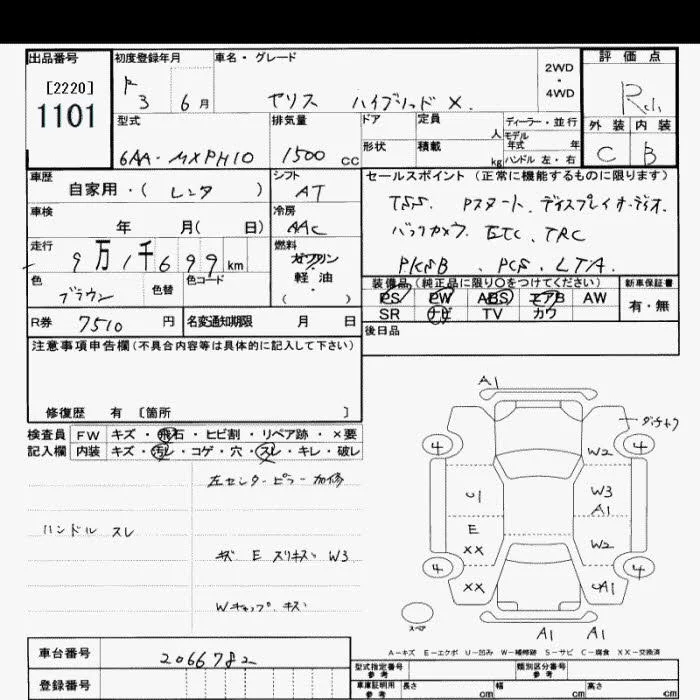 出品番号 初度登録年月 車名・グレード 評価点
[2220]
1101
3 6月 ヤリス ハイブリッド X. 2WD・4WD
型式 排気量 ドア 定員 人 ディーラー・並行 外装 内装
モデル年式 年
6AA-MXPH10 1500cc 形状 積載 kg ハンドル 左・右 C B
車歴 シフト セールスポイント (正常に機能するものに限ります)
自家用・(レンタ) AT TSS. Pスタート. ディスプレイオーディオ.
車検 冷房 バックカメラ. ETC. TRC
年 月(日) AAC
走行 燃料 PKSB. PCS. LTA.
9万1千699km ガソリン
軽油
( )
色 色替 色コード 装備品(純正品に限り○をつけてください) 新車保証書
ブラウン PS PW ABS エアB AW 有・無
SR ナビ TV カワ
R券 7510円 名変通知期限 月 日 後日品
注意事項申告欄(不具合内容等は具体的に記入して下さい)
修復歴 有 〔箇所 〕
検査員 FW キズ・飛石・ヒビ割・リペア跡・×要
記入欄 内装 キズ・汚レ・コゲ・穴・スレ・キレ・破レ
左センターピラー加修
ハンドル スレ
キズ E スリキズ W3
Wキャップ キズ
A1
4 4
W2
U1 W3
A1
E
XX W2
4 4
XX
A1 A1
スペア
A-キズ E-エクボ U-凹み W-補修跡 S-サビ C-腐食 XX-交換済
車台番号 2066782
登録番号
型式指定番号 参考 類別区分番号 参考
車庫証明用 参考 長さ cm 幅 cm 高さ cm